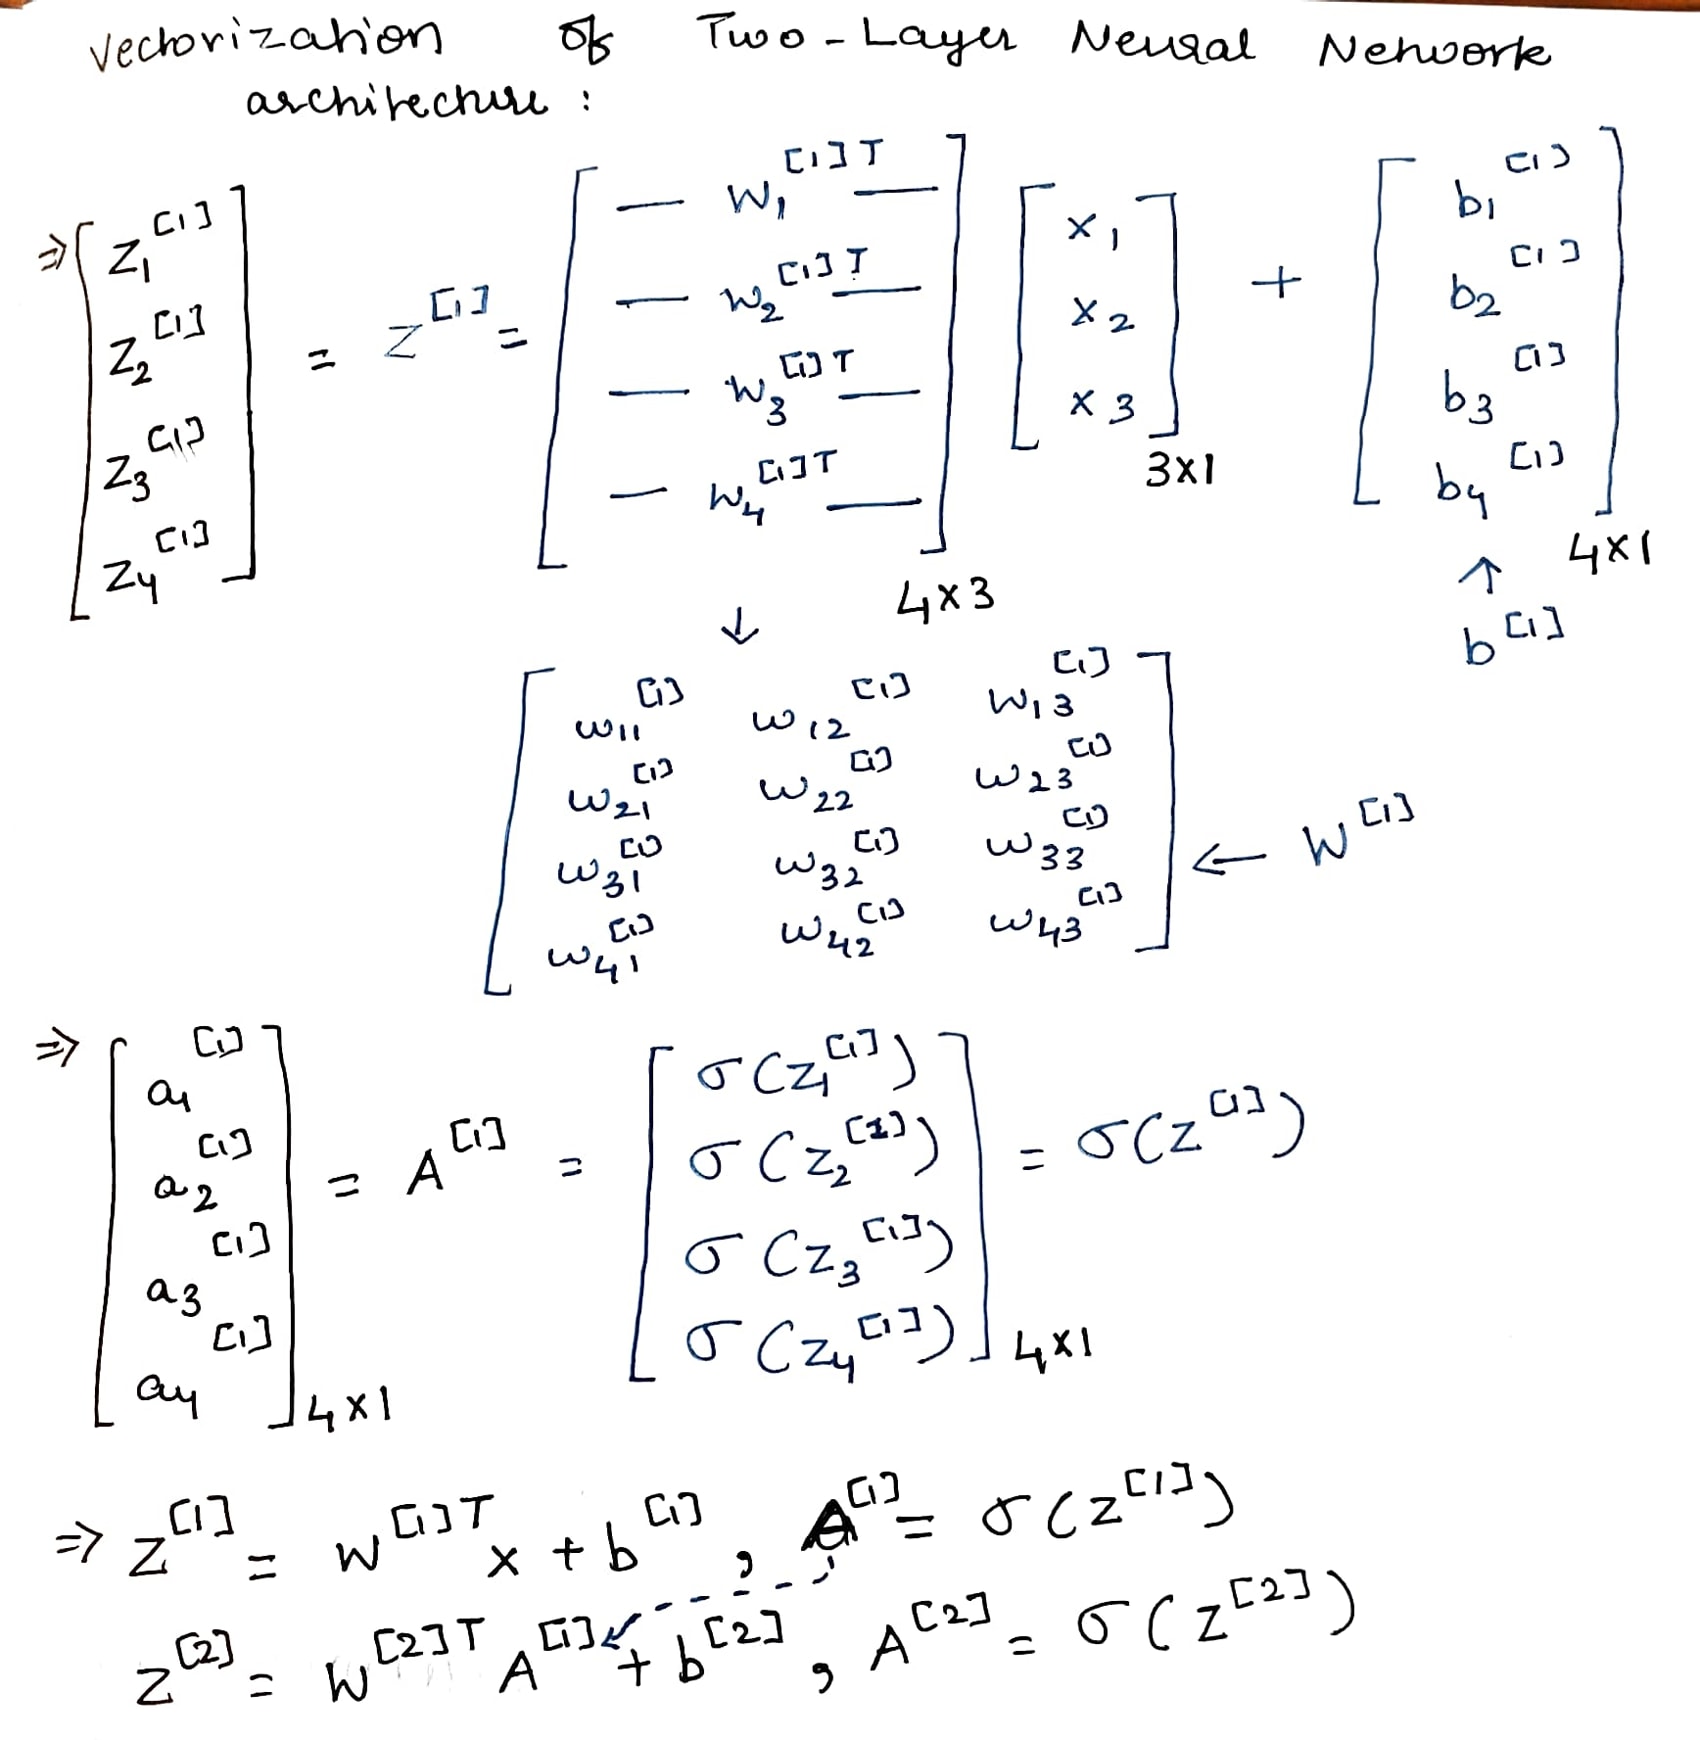 Vectorization of Two-Layer Neural Network
architecture :
⇒ [ z₁^[1] z₂^[1] z₃^[1] z₄^[1] ] = z^[1] = [ — w₁^[1]T — — w₂^[1]T — — w₃^[1]T — — w₄^[1]T — ] 4×3 [ x₁ x₂ x₃ ] 3×1 + [ b₁^[1] b₂^[1] b₃^[1] b₄^[1] ] 4×1
↓ ↑ b^[1]
[ w₁₁^[1] w₁₂^[1] w₁₃^[1]
w₂₁^[1] w₂₂^[1] w₂₃^[1]
w₃₁^[1] w₃₂^[1] w₃₃^[1] ← W^[1]
w₄₁^[1] w₄₂^[1] w₄₃^[1] ]
⇒ [ a₁^[1] a₂^[1] a₃^[1] a₄^[1] ] 4×1 = A^[1] = [ σ(z₁^[1]) σ(z₂^[1]) σ(z₃^[1]) σ(z₄^[1]) ] 4×1 = σ(z^[1])
⇒ z^[1] = W^[1]T x + b^[1] , A^[1] = σ(z^[1])
z^[2] = W^[2]T A^[1] + b^[2] , A^[2] = σ(z^[2])